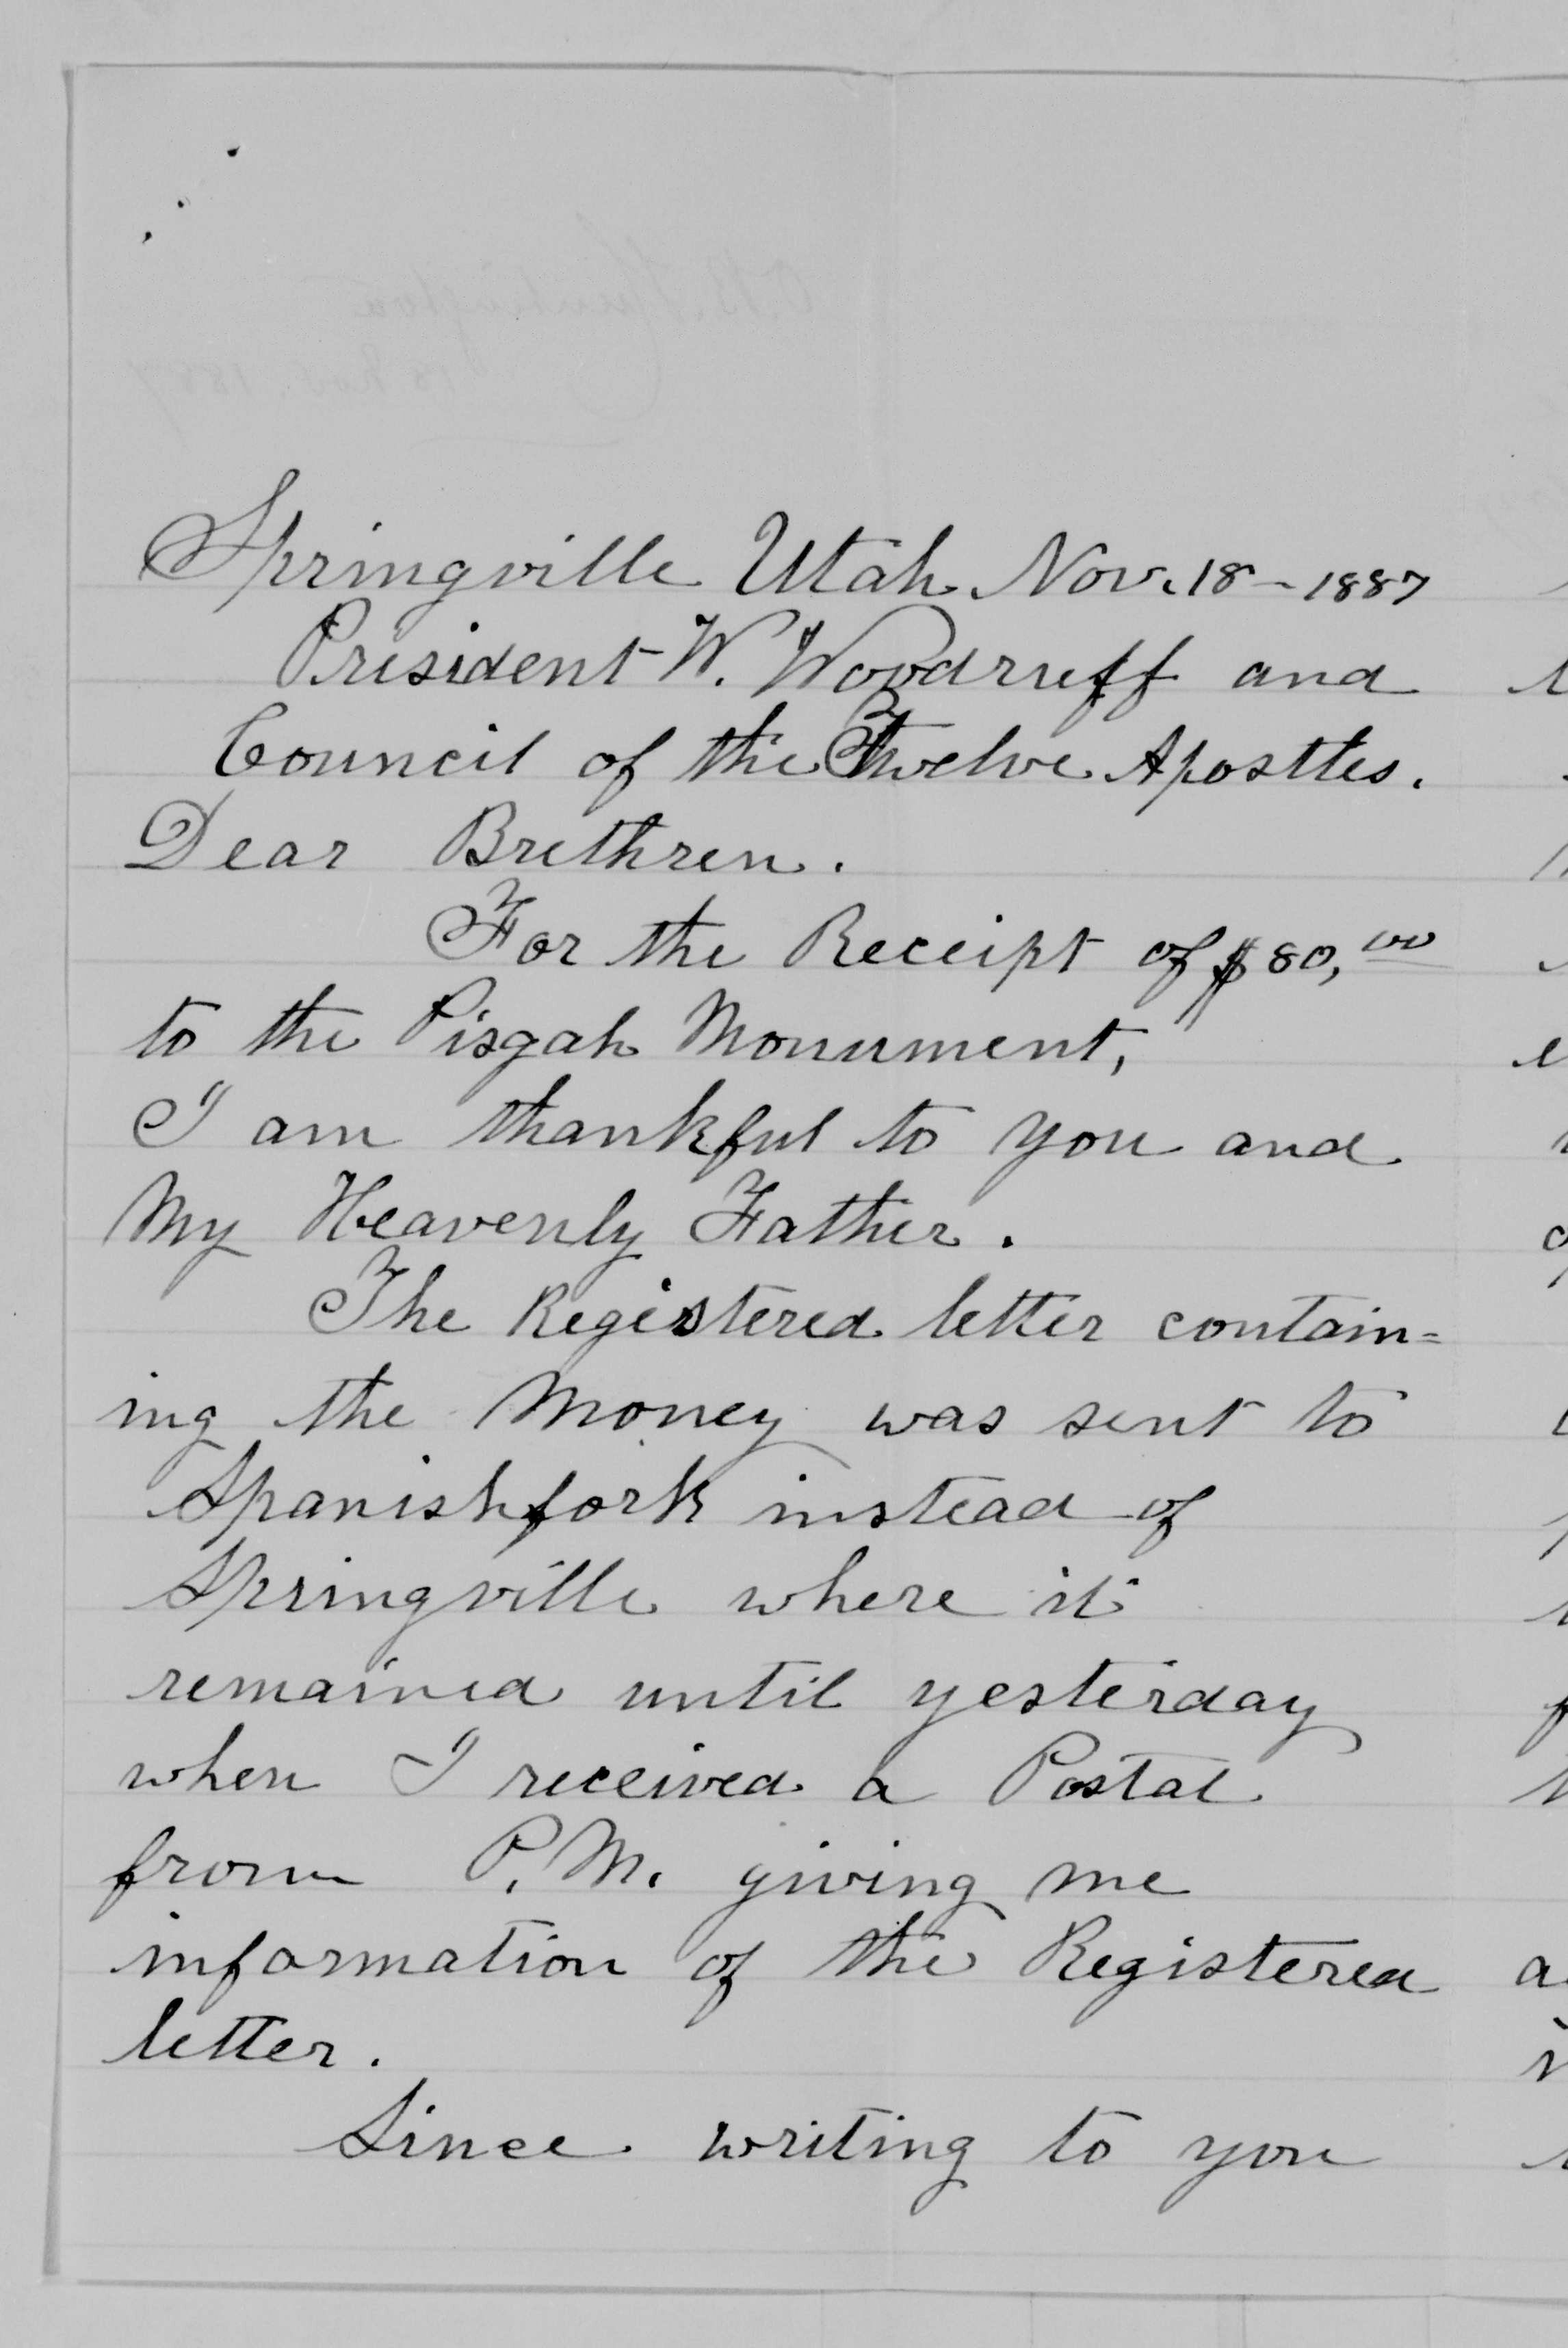 Springville Utah Nov. 18 - 1887
President W. Woodruff and
Council of the Twelve Apostles.
Dear Brethren.
For the Receipt of $80,00
to the Pisgah Monument,
I am thankful to you and
My Heavenly Father.
The Registered letter contain=
ing the Money was sent to
Spanishfork instead of
Springville where it
remained until yesterday
when I received a Postal
from P. M. giving me
information of the Registered
letter.
Since writing to you